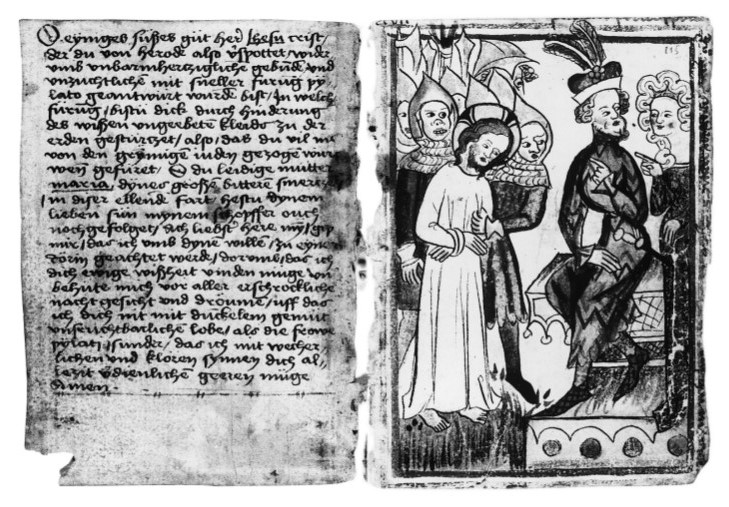 O eyniges süßes güt her Jhesu crist /
der du von herode also v̄spottet / wider
vmb vnbarmhertzigliche gebūdē vnd
vnzuchtliche mit sneller furūg py
lato geantwürt wurde bist / In welch
fürūg / bistu dick durch hinderung
des wißen vngerbete kleids zu der
erden gesturczet / also / das du vil
von den grymige iuden gezogē
wen gefüret / O du leidige mutter
maria, dynes großē bittere smertz
in diser ellend fart / hestu dynem
lieben sün mynem schopffer ouch
nochgefolget / Ach liebst here my / gip
mir / das ich vmb dyne wille / zu eyne
törin geachtet werde / dorumb / das ich
dich ewige wißheit vinden müge vn
behüte mich vor aller erschröckliche
nacht gesicht vnd dröume / vff das
ich dich nit mit dückelem gemüt
vnfruchtbarliche lobe / als die frowe
pylati / sunder / das ich mit wecker
lichen vnd kloren synnen dich al,
lezit v̄dienlichē geeren müge
Amen .